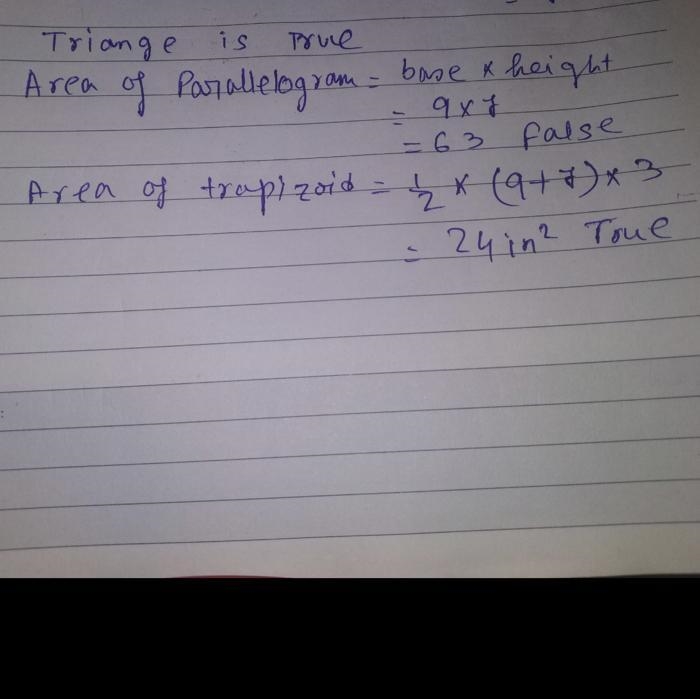 Triange is True
Area of Parallelogram = base x height
= 9x7
= 63 false
Area of trapizoid = 1/2 x (9+7) x 3
= 24 in² True